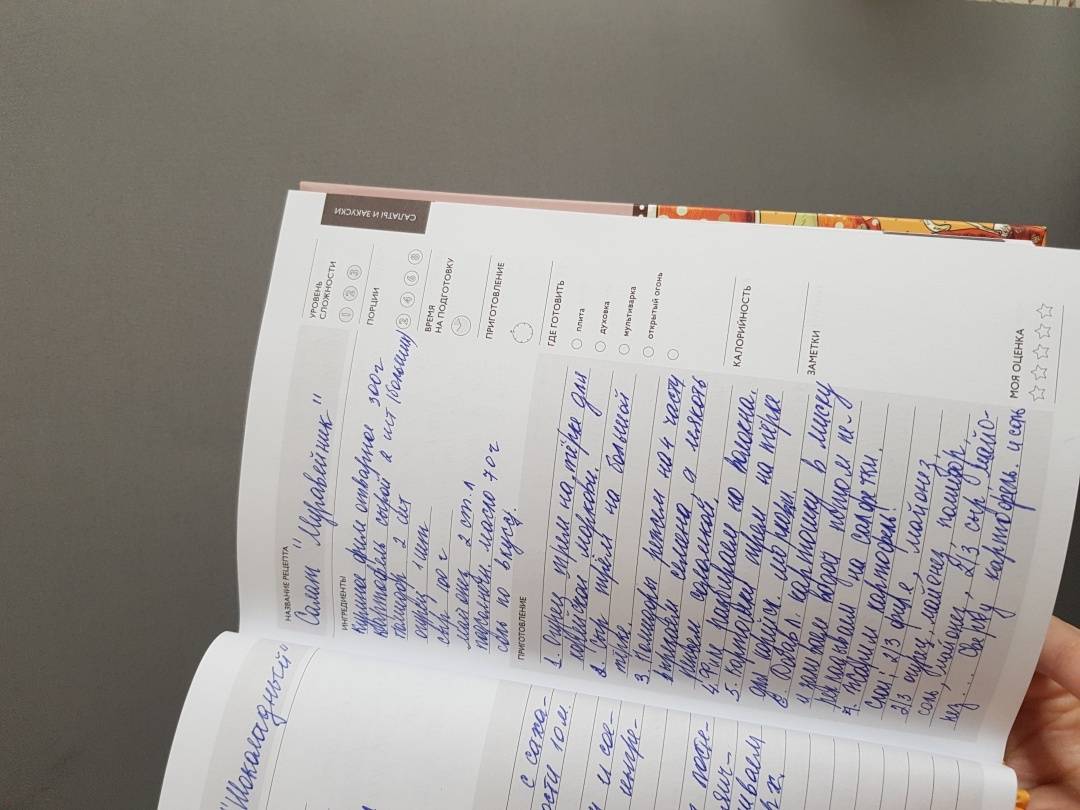 САЛАТЫ И ЗАКУСКИ
НАЗВАНИЕ РЕЦЕПТА
Салат "Муравейник"
ИНГРЕДИЕНТЫ
Куриное филе отварное 300г
Картофель сырой 2 шт (большии)
помидор 2 шт
огурец 1 шт
сыр 100 г
майонез 2 ст.л
подсолнечн. масло 70 г
соль по вкусу.
УРОВЕНЬ
СЛОЖНОСТИ
1 2 3
ПОРЦИИ
2 4 6 8
ВРЕМЯ
НА ПОДГОТОВКУ
ПРИГОТОВЛЕНИЕ
ГДЕ ГОТОВИТЬ
плита
духовка
мультиварка
открытый огонь
КАЛОРИЙНОСТЬ
ЗАМЕТКИ
МОЯ ОЦЕНКА
ПРИГОТОВЛЕНИЕ
1. Огурец трем на тёрке для
корейской моркови.
2. Сыр трём на большой
тёрке.
3. Помидоры режем на 4 часты
убираем семена, а мякоть
режем соломкой.
4. Филе разбираем на волокна.
5. Картофель трем на тёрке
для корейск. моркови
6. Девор картошку в миску
и зальем водой потом пе-
рекладываем на салфетки.
7. Жарим картофель!
слои, 2/3 филе, майонез,
2/3 огурец, майонез, помидор,
соль, майонез, 2/3 сыр, майо-
нез.... Сверху картофель. и сыр
"Шоколадный"
с саха-
ости 10 м.
и сое-